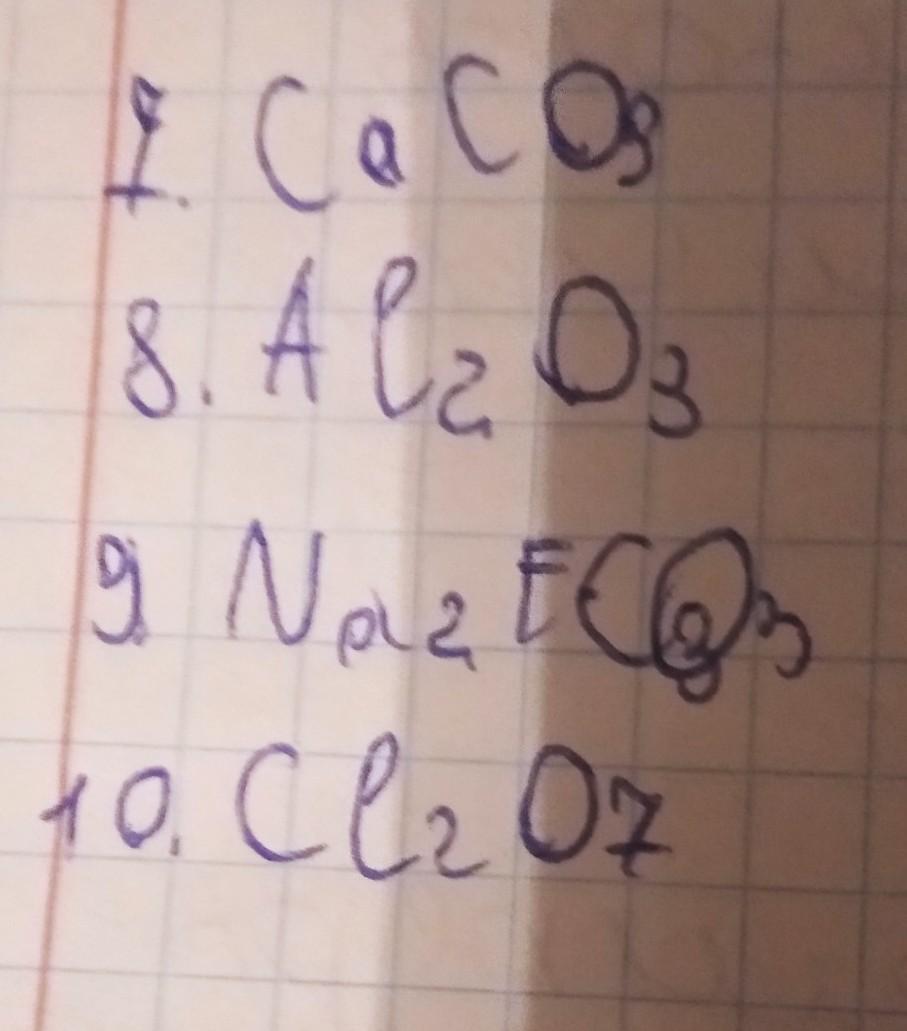 7. CaCO3
8. Al2O3
9. Na2
10. Cl2O7